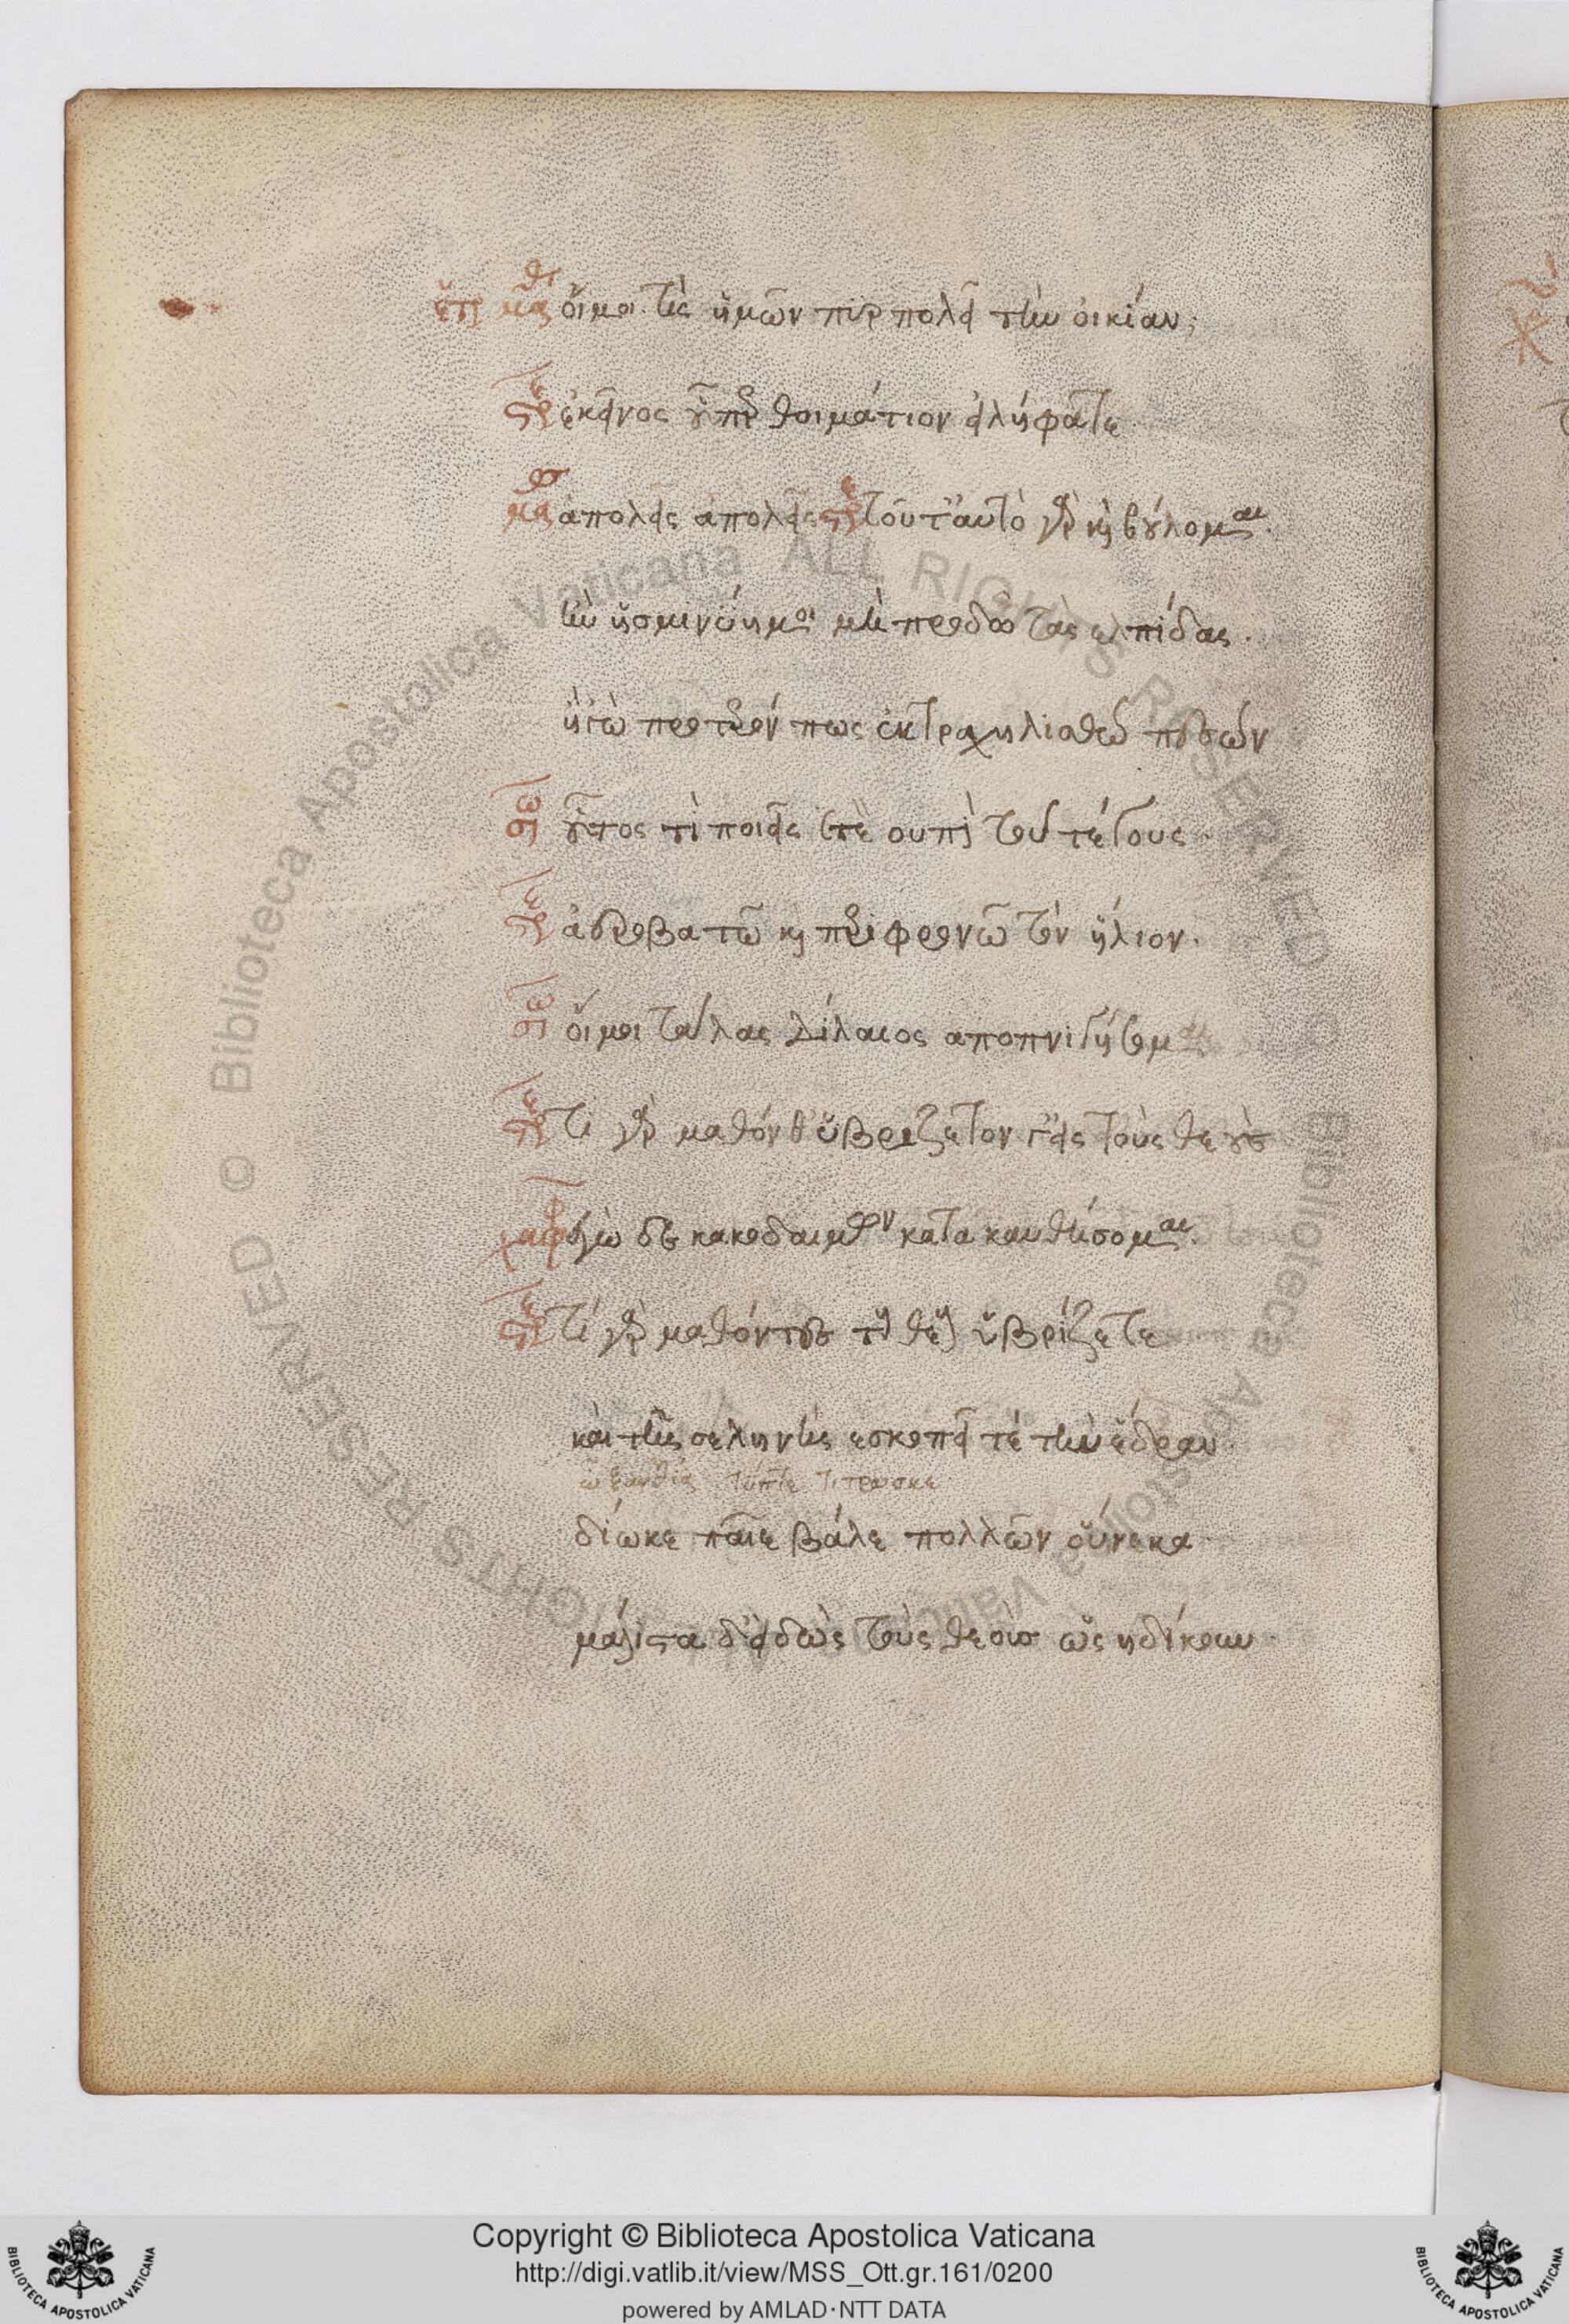 ἕτερ μαθ οἴμοι τίς ἡμῶν πυρπολεῖ τὴν οἰκίαν;
στρε ἐκεῖνος οὗπερ θοιμάτιον εἰλήφατε
μαθ ἀπολεῖς ἀπολεῖς στρε τοῦτ' αυτὸ γὰρ καὶ βούλομαι.
ἢν ἡ σμινύη μοι μὴ προδῶ τὰς ελπίδας.
ἢ 'γὼ πρότερόν πως ἐκτραχηλισθῶ πεσών
σω οὗτος τί ποιεῖς ετε ουπὶ τοῦ τέγους
στρε ἀεροβατῶ καὶ περιφρονῶ τὸν ἥλιον.
σω οἴμοι τάλας δείλαιος αποπνιγήσομαι
στρε τι γὰρ μαθόνθ' ὑβριζετον γ' εἰς τοὺς θεούς
χαιρ ἐγὼ δὲ κακοδαίμων κατακαυθήσομαι.
στρε τί γὰρ μαθόντες τοὺς θεοὺς ὑβρίζετε
καὶ τῆς σελήνης εσκοπεῖτε τὴν ἕδραν
ὦ ξανθία τύπτε τίτρωσκε
δίωκε παῖε βάλε πολλῶν οὕνεκα
μάλιστα δ' εἰδὼς τοὺς θεοὺσ ὡς ηδίκουν
Biblioteca Apostolica Vaticana ALL RIGHTS RESERVED ©
Copyright © Biblioteca Apostolica Vaticana
http://digi.vatlib.it/view/MSS_Ott.gr.161/0200
powered by AMLAD·NTT DATA
BIBLIOTECA APOSTOLICA VATICANA
BIBLIOTECA APOSTOLICA VATICANA